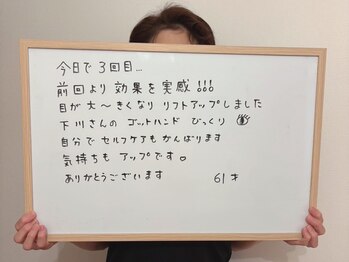 今日で3回目...
前回より効果を実感!!!
目が大〜きくなり リフトアップしました
下川さんの ゴットハンド びっくり
自分で セルフケアも がんばります
気持ちも アップです。
ありがとうございます 61才